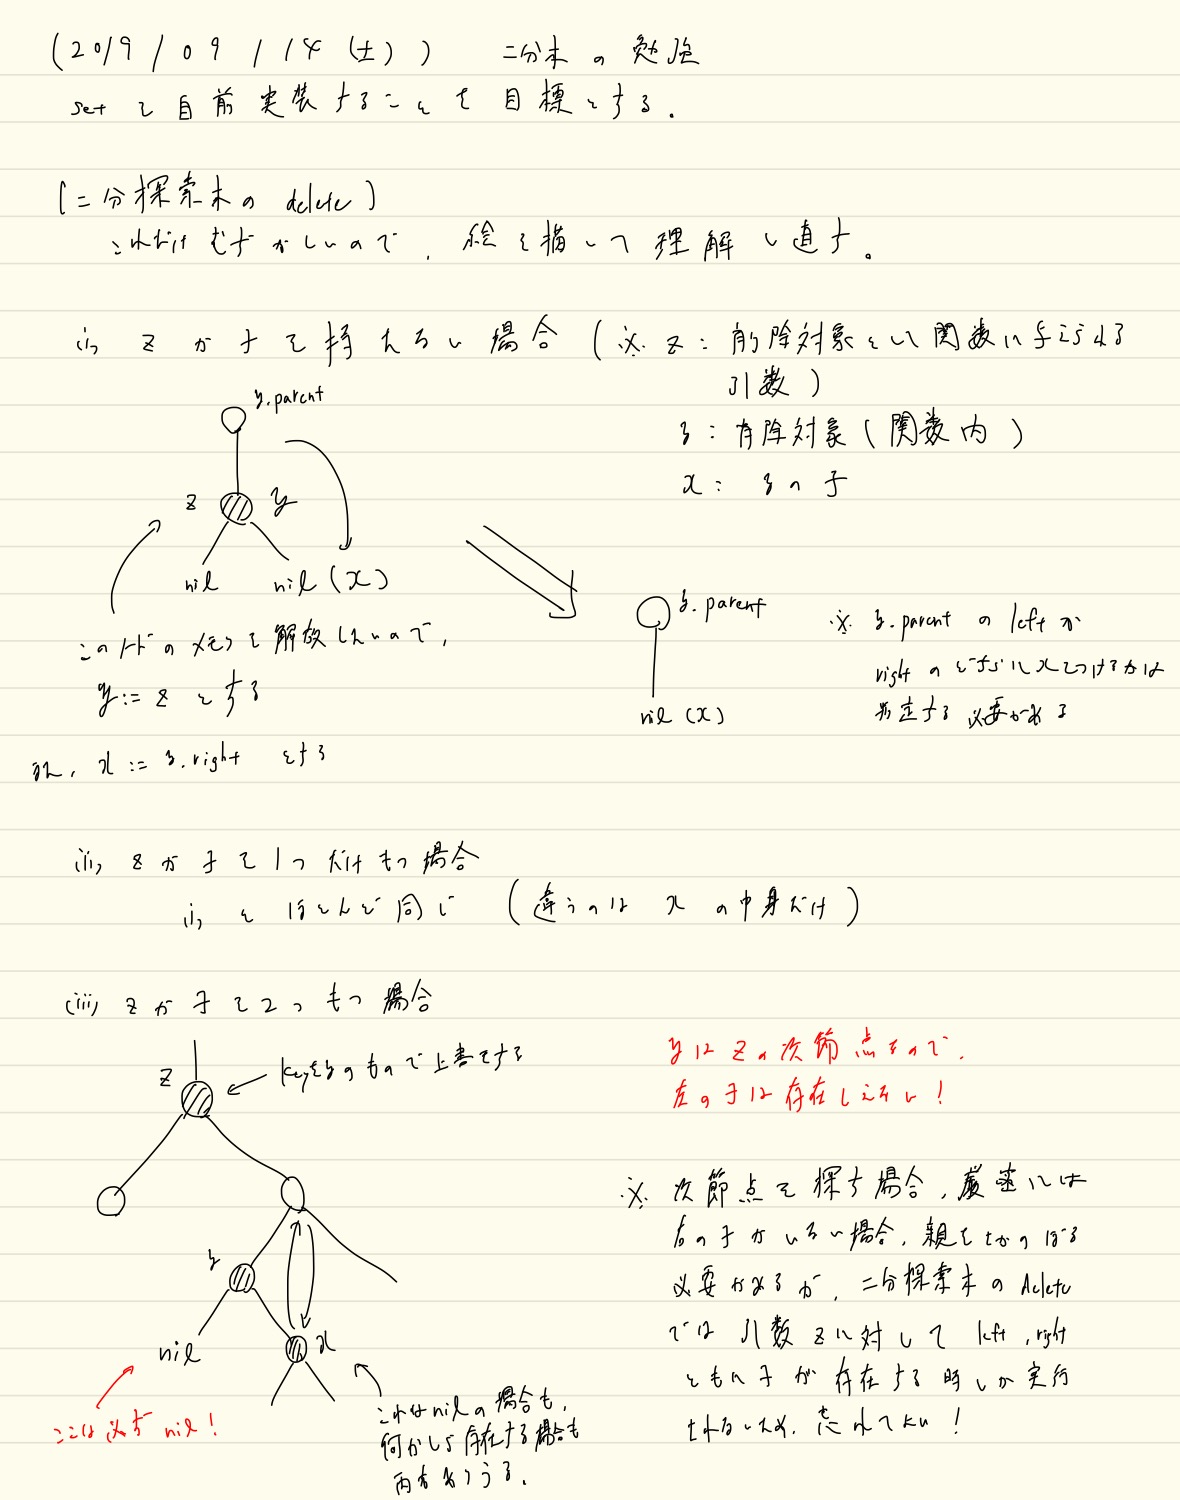 (2019/09/14(土)) 二分木の勉強
setを自前実装することを目標とする。
(二分探索木のdelete)
これだけむずかしいので、絵を描いて理解し直す。
(i) zが子を持たない場合 (※ z: 削除対象として関数に与えられる
引数)
y: 削除対象(関数内)
x: yの子
y.parent
z
y
nil
nil (x)
このノードのメモリを解放したいので、
y:= z とする
また、x := y.right とする
y.parent
nil (x)
※ y.parent の left か
right のどちらにxをつけるかは
判定する必要がある
(ii) zが子を1つだけもつ場合
(i) とほとんど同じ (違うのは x の中身だけ)
(iii) zが子を2つもつ場合
z
keyをyのもので上書きする
y
nil
x
ここは必ず nil!
これはnilの場合も、
何かしら存在する場合も
両方ありうる。
yはzの次節点なので、
左の子は存在しえない!
※ 次節点を探す場合、厳密には
右の子がいない場合、親をさかのぼる
必要があるが、二分探索木のdelete
では引数zに対して left, right
ともに子が存在する時しか実行
されないため、忘れてOK!